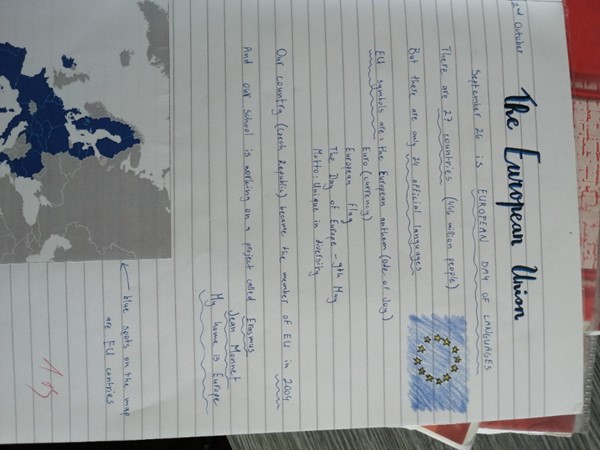 2nd October
The European Union
September 26 is EUROPEAN DAY OF LANGUAGES
There are 27 countries (446 milion people)
But there are only 24 official languages
EU symbols are: the European anthem (Ode of Joy)
Euro (currency)
European flag
The Day of Europe - 9th May
Motto: Unique in diversity
Our country (Czech Republic) became the member of EU in 2004
And our school is working on a project called Erasmus
Jean Monnet
My home is Europe
blue spots on the map
are EU contries